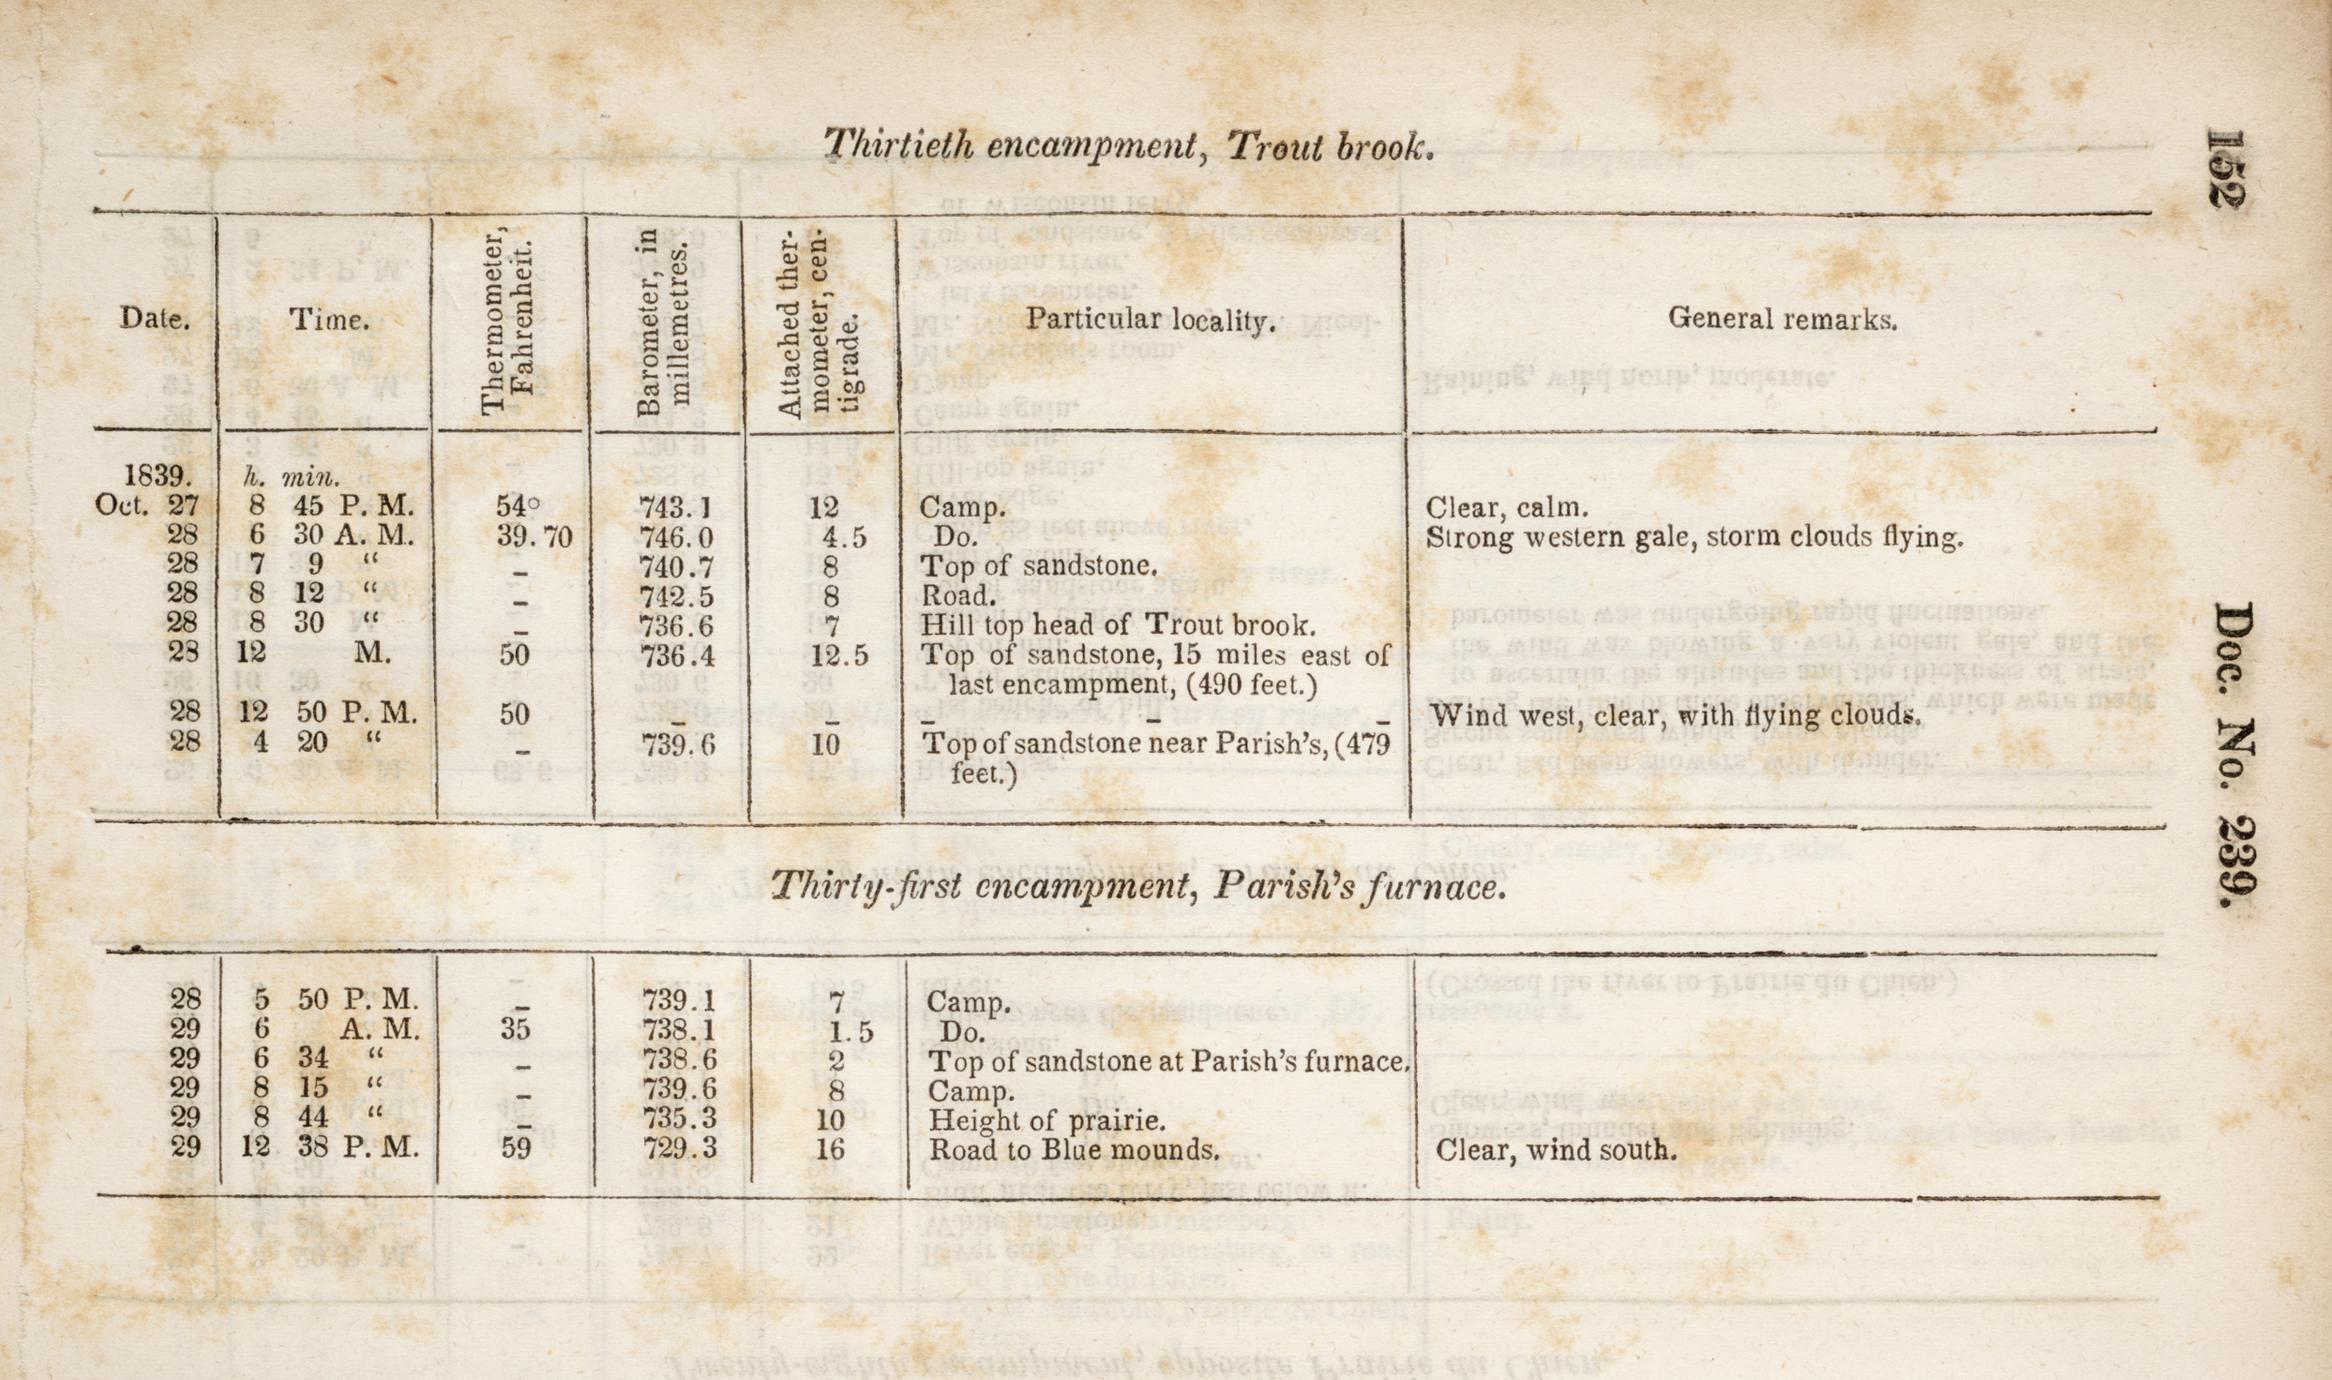 152
Doc. No. 239.
Thirtieth encampment, Trout brook.
Date. Time. Thermometer, Fahrenheit. Barometer, in millemetres. Attached thermometer, centigrade. Particular locality. General remarks.
1839. h. min.
Oct. 27 8 45 P. M. 54° 743.1 12 Camp. Clear, calm.
28 6 30 A. M. 39.70 746.0 4.5 Do. Strong western gale, storm clouds flying.
28 7 9 “ – 740.7 8 Top of sandstone.
28 8 12 “ – 742.5 8 Road.
28 8 30 “ – 736.6 7 Hill top head of Trout brook.
28 12 M. 50 736.4 12.5 Top of sandstone, 15 miles east of
last encampment, (490 feet.)
28 12 50 P. M. 50 – – – – – Wind west, clear, with flying clouds.
28 4 20 “ – 739.6 10 Top of sandstone near Parish's, (479
feet.)
Thirty-first encampment, Parish's furnace.
28 5 50 P. M. – 739.1 7 Camp.
29 6 A. M. 35 738.1 1.5 Do.
29 6 34 “ – 738.6 2 Top of sandstone at Parish's furnace.
29 8 15 “ – 739.6 8 Camp.
29 8 44 “ – 735.3 10 Height of prairie.
29 12 38 P. M. 59 729.3 16 Road to Blue mounds. Clear, wind south.